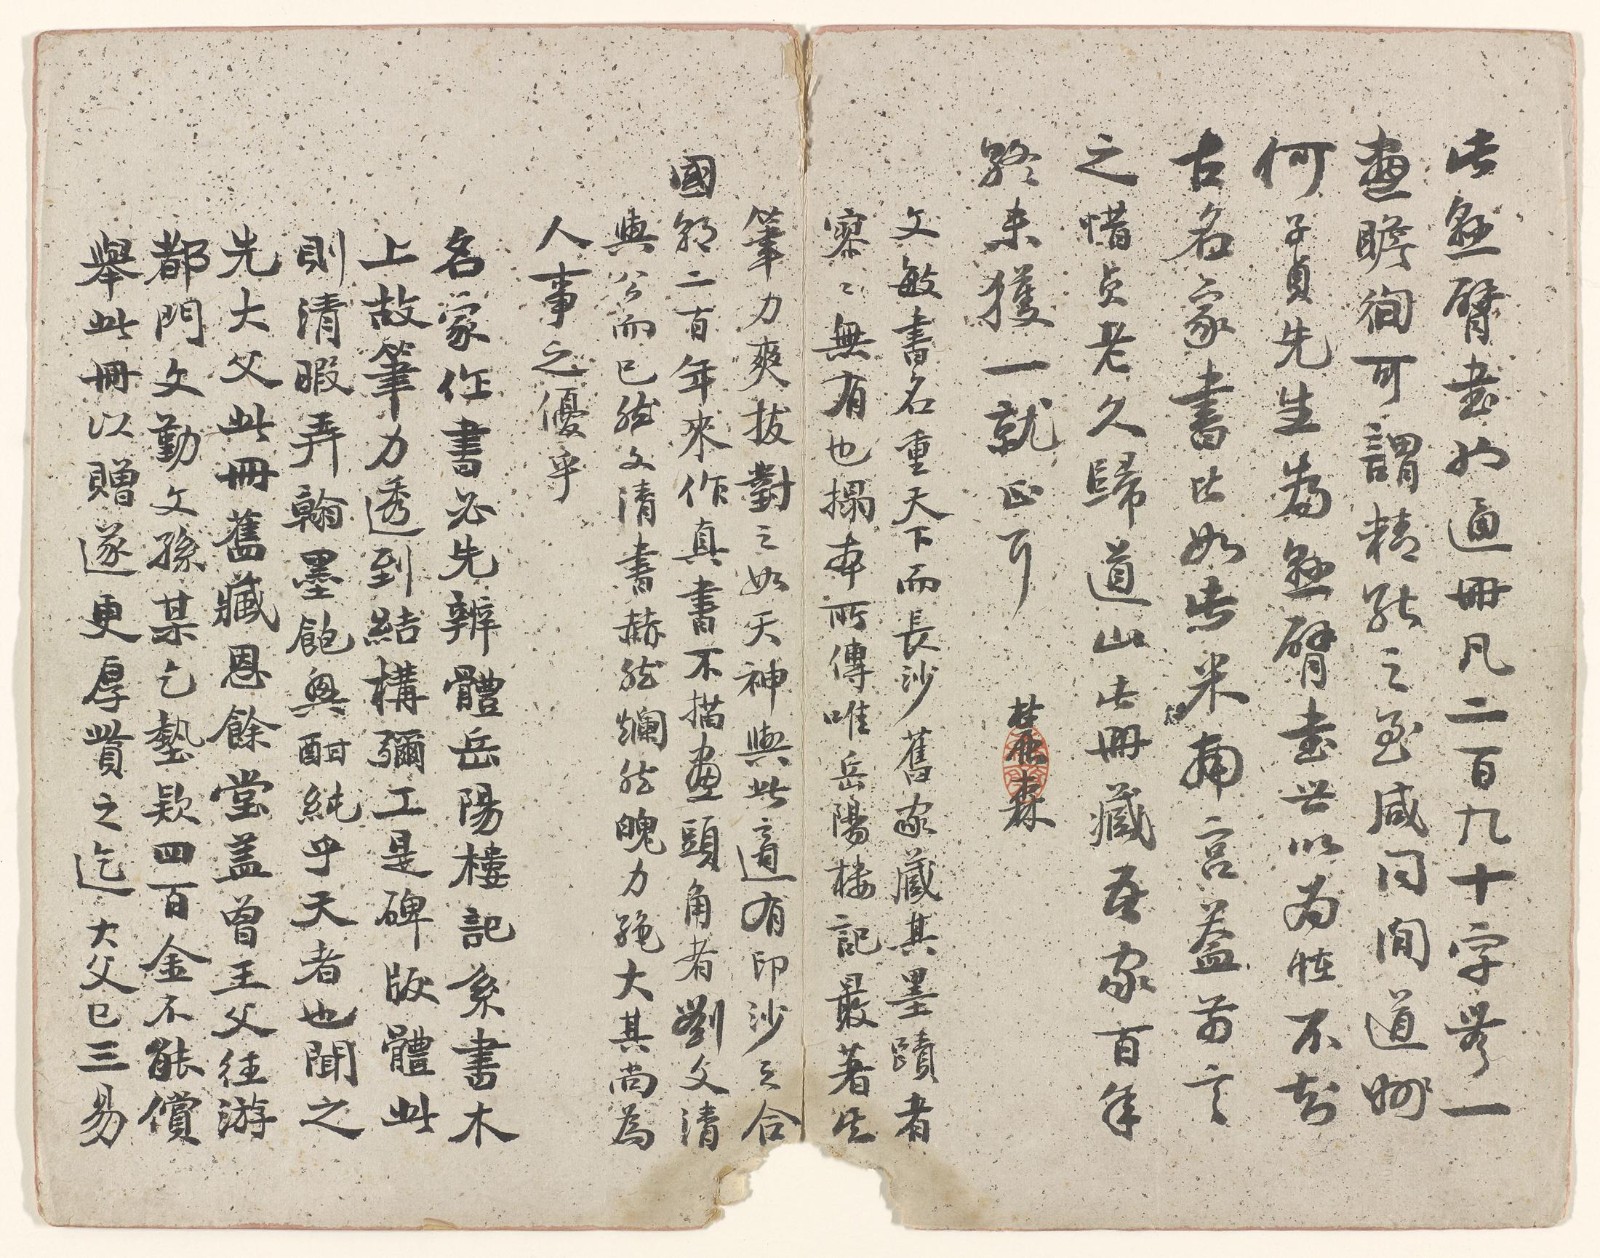 此懸臂書也通冊凡二百九十字無一
畫瞻徇可謂精能之至咸同間道州
何子貞先生為懸臂書世以為怪不知
古名家書比如此米南宮蓋嘗言
之惜貞老久歸道山此冊藏吾家百年
終未獲一就正耳
文敏書名重天下而長沙舊家藏其墨蹟者
寥〻無有也搨本所傳唯岳陽樓記最著此
筆力爽拔對之如天神與此適有印沙之合
國朝二百年來作真書不描畫頭角者劉文清
與公而已然文清書赫然爛然魄力絕大其尚為
人事之優乎
名家作書必先辨體岳陽樓記系書木
上故筆力透到結構彌工是碑版體此
則清暇弄翰墨飽興酣純乎天者也聞之
先大父此冊舊藏恩餘堂蓋曾王父往游
都門文勤文孫某乞墊款四百金不能償
舉此冊以贈遂更厚貲之迄大父已三易